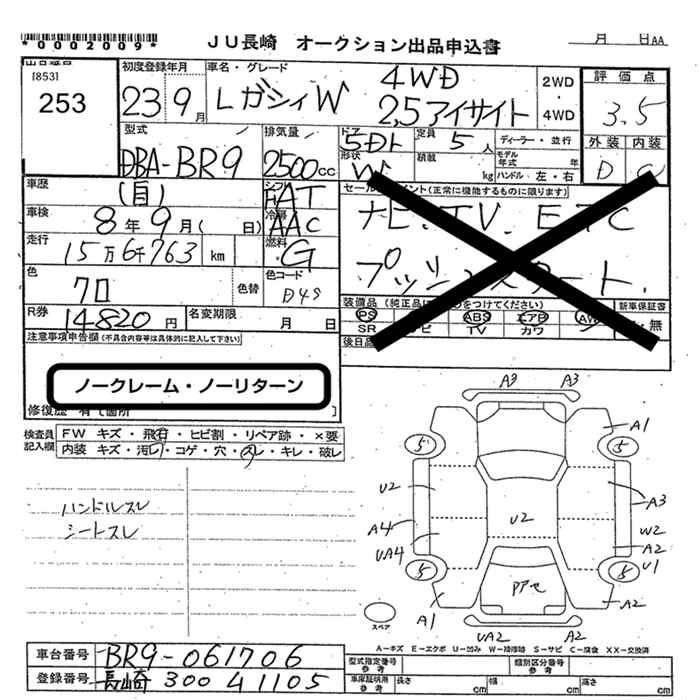 *0002009*
JU長崎 オークション出品申込書
月 日AA
[853]
253
初度登録年月
23 9月
車名・グレード
レガシィW 4WD
2.5アイサイト
2WD
・
4WD
評価点
3.5
外装 内装
D C
型式
DBA-BR9
排気量
2500cc
ドア
5Dト
形状
W
定員
5人
積載
kg
ディーラー・並行
モデル年式 年
ハンドル 左・右
車歴
(自)
シフト
FAT
車検
8年9月( 日)
冷房
AAC
走行
15万6千763 km
燃料
G
色
クロ
色替
色コード
D4S
R券
14820円
名変期限 月 日
セールスポイント(正常に機能するものに限ります)
ナビ.TV.ETC
プッシュスタート.
装備品(純正品は○をつけてください)
新車保証書
PS ABS エアB AW
SR ナビ TV カワ
有・無
後日品
注意事項申告欄(不具合内容等は具体的に記入して下さい)
ノークレーム・ノーリターン
修復歴 有て箇所
検査員記入欄
FW キズ・飛石・ヒビ割・リペア跡・×要
内装 キズ・汚レ・コゲ・穴・スレ・キレ・破レ
ハンドルスレ
シートスレ
A3 A3
A1
5 5
U2
A3
A4
U2
W2
UA4
A2
5 5
U1
A1
A2
UA2 A2
スペア
A-キズ E-エクボ U-凹み W-補修跡 S-サビ C-腐食 XX-交換済
車台番号 BR9-061706
登録番号 長崎 300 る 1105
型式指定番号 参考
類別区分番号 参考
車庫証明用 参考
長さ cm
幅 cm
高さ cm